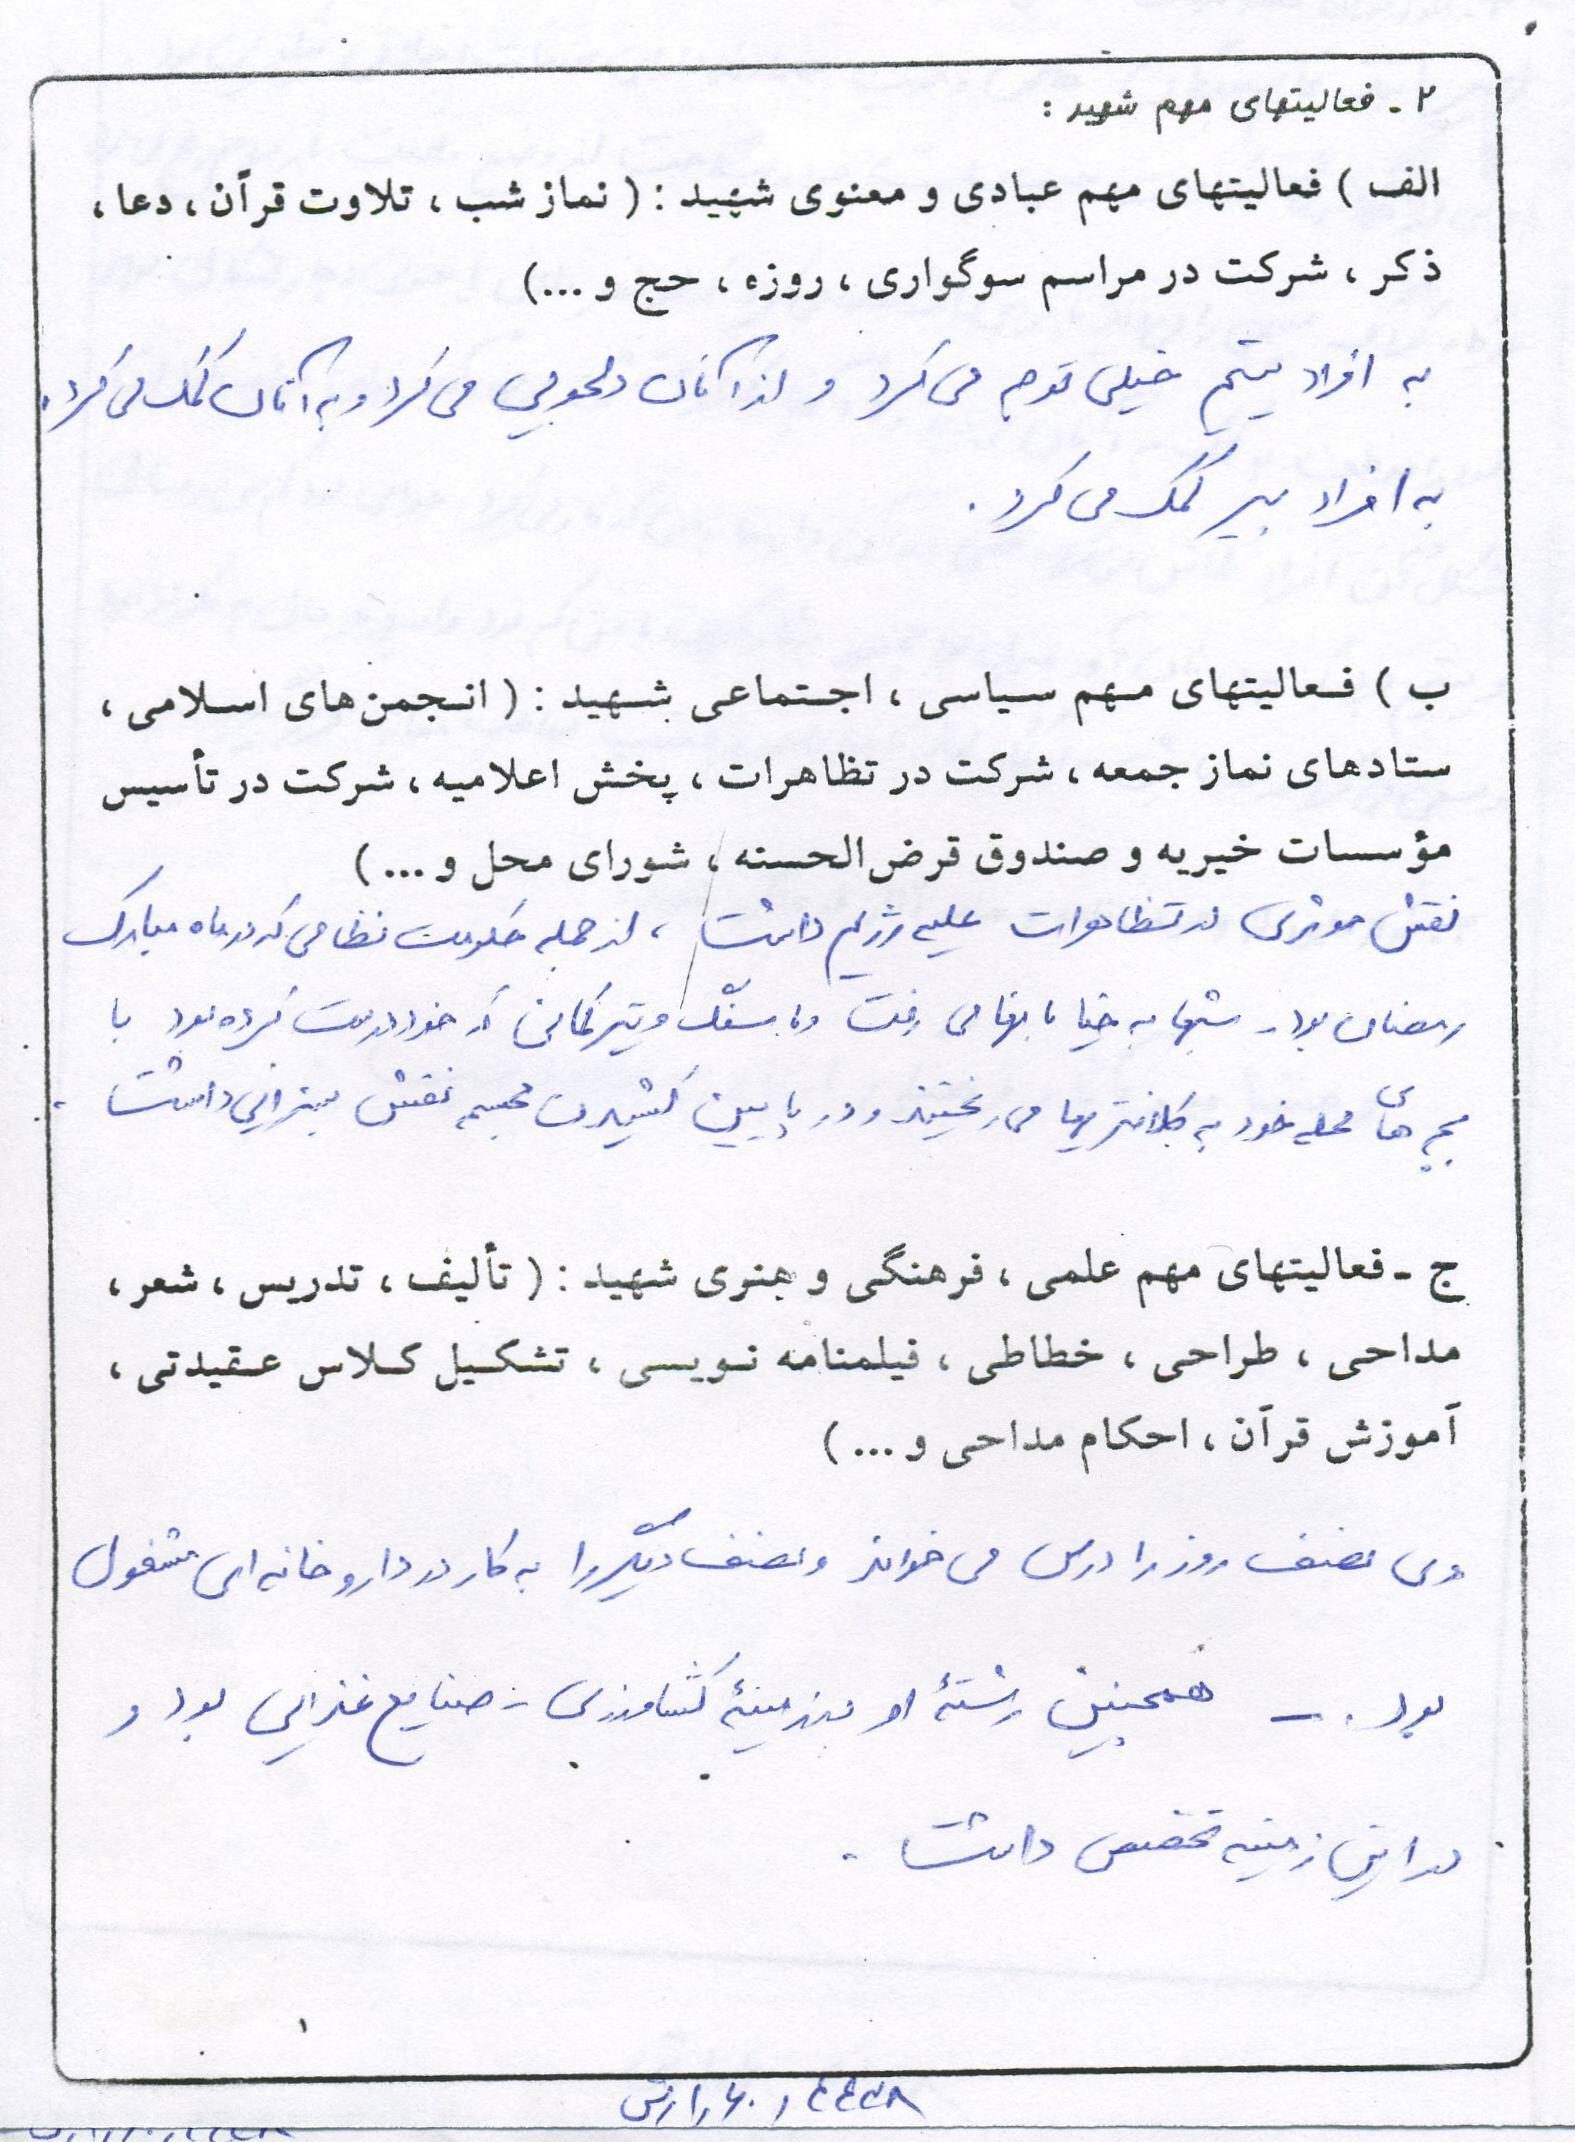 ۲ - فعالیتهای مهم شهید :
الف ) فعالیتهای مهم عبادی و معنوی شهید : ( نماز شب ، تلاوت قرآن ، دعا ،
ذکر ، شرکت در مراسم سوگواری ، روزه ، حج و ...)
به افراد یتیم خیلی توجه می کرد و از آنان دلجویی می کرد و به آنان کمک می کرد.
به افراد پیر کمک می کرد .
ب ) فعالیتهای مهم سیاسی ، اجتماعی شهید : ( انجمن های اسلامی ،
ستادهای نماز جمعه ، شرکت در تظاهرات ، پخش اعلامیه ، شرکت در تأسیس
مؤسسات خیریه و صندوق قرض الحسنه ، شورای محل و ... )
نقش موثری در تظاهرات علیه رژیم داشت ، از جمله حکومت نظامی که در ماه مبارک
رمضان بود - شبها به خیابانها می رفت و با سنگ و تیرکمانی که خود درست کرده بود با
بچه های محله خود به کلانتریها می ریختند و در پایین کشیدن مجسمه نقش بسزایی داشت .
ج - فعالیتهای مهم علمی ، فرهنگی و هنری شهید : ( تألیف ، تدریس ، شعر ،
مداحی ، طراحی ، خطاطی ، فیلمنامه نویسی ، تشکیل کلاس عقیدتی ،
آموزش قرآن ، احکام مداحی و ... )
وی نصف روز را درس می خواند و نصف دیگر را به کار در داروخانه ای مشغول
بود . - همچنین رشتهٔ او در زمینهٔ کشاورزی - صنایع غذایی بود و
در این زمینه تخصص داشت .